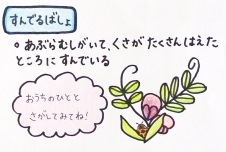 すんでるばしょ
• あぶらむしがいて、くさがたくさんはえた
ところにすんでいる
おうちのひとと
さがしてみてね!